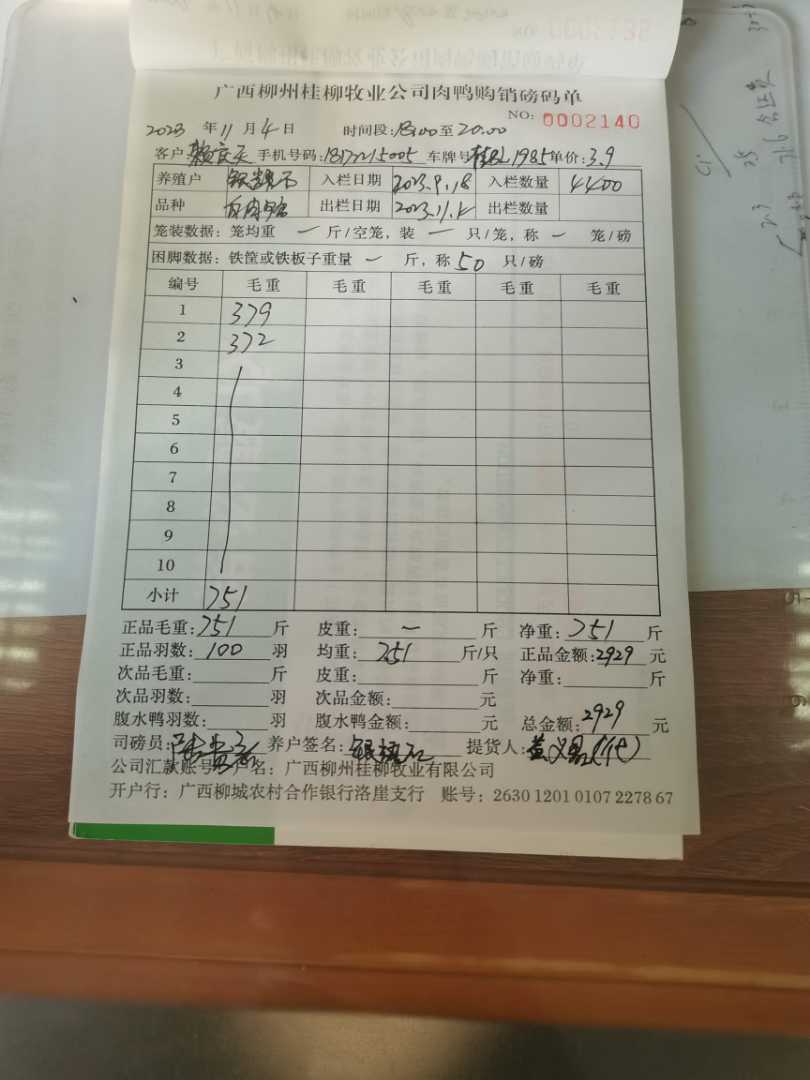 广西柳州桂柳牧业公司肉鸭购销磅码单
NO: 0002140
2023 年 11 月 4 日 时间段: 18:00 至 20:00
客户: 手机号码: 车牌号 单价: 3.9
养殖户 入栏日期 2023.9.18 入栏数量 4400
品种 白肉鸭 出栏日期 2023.11.4 出栏数量
笼装数据: 笼均重 一 斤/空笼, 装 一 只/笼, 称 一 笼/磅
困脚数据: 铁筐或铁板子重量 一 斤, 称 50 只/磅
编号 毛重 毛重 毛重 毛重 毛重
1 379
2 372
3
4
5
6
7
8
9
10
小计 751
正品毛重: 751 斤 皮重: 一 斤 净重: 751 斤
正品羽数: 100 羽 均重: 7.51 斤/只 正品金额: 2929 元
次品毛重: 斤 皮重: 斤 净重: 斤
次品羽数: 羽 次品金额: 元
腹水鸭羽数: 羽 腹水鸭金额: 元 总金额: 2929 元
司磅员: 养户签名: 提货人: (代)
公司汇款账号 户名: 广西柳州桂柳牧业有限公司
开户行: 广西柳城农村合作银行洛崖支行 账号: 2630 1201 0107 2278 67